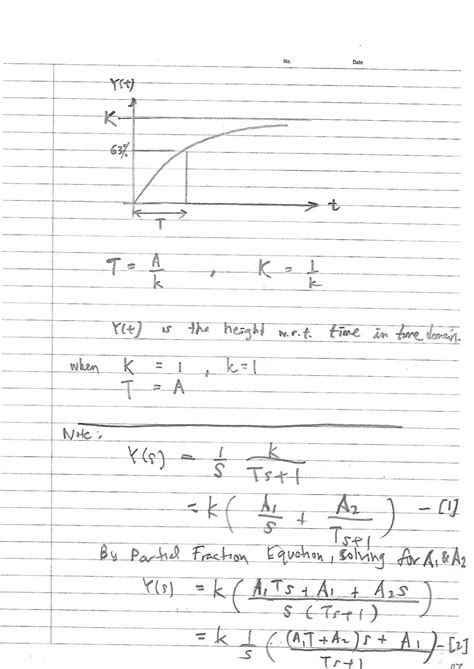 No. Date
Y(t)
K
63%
t
T
T = A/k , K = 1/k
Y(t) is the height w.r.t. time in time domain.
when K = 1 , k=1
T = A
Note:
Y(s) = 1/s k/(Ts+1)
= k ( A1/s + A2/(Ts+1) ) - [1]
By Partial Fraction Equation, solving for A1 & A2
Y(s) = k ( (A1Ts + A1 + A2s)/(s(Ts+1)) )
= k 1/s ( ((A1T+A2)s + A1)/(Ts+1) ) - [2]